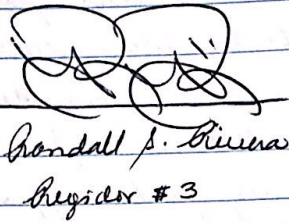 Randall S. Rivera
Regidor # 3